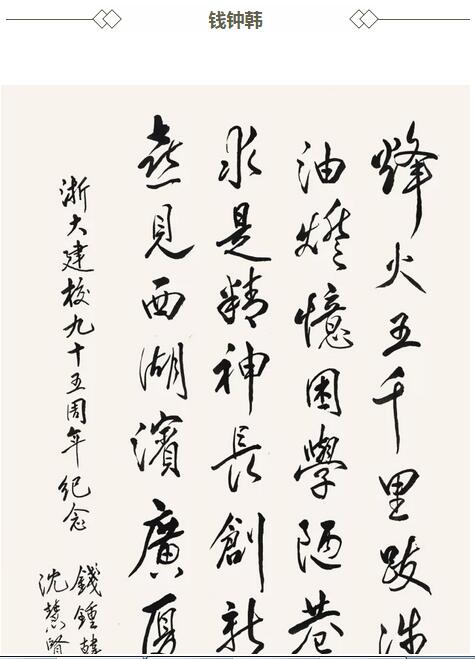 钱钟韩
烽火五千里跋涉
油燈憶困學陋巷
求是精神長創新
喜見西湖濱廣厦
浙大建校九十五周年纪念
錢鍾韓
沈慧贤